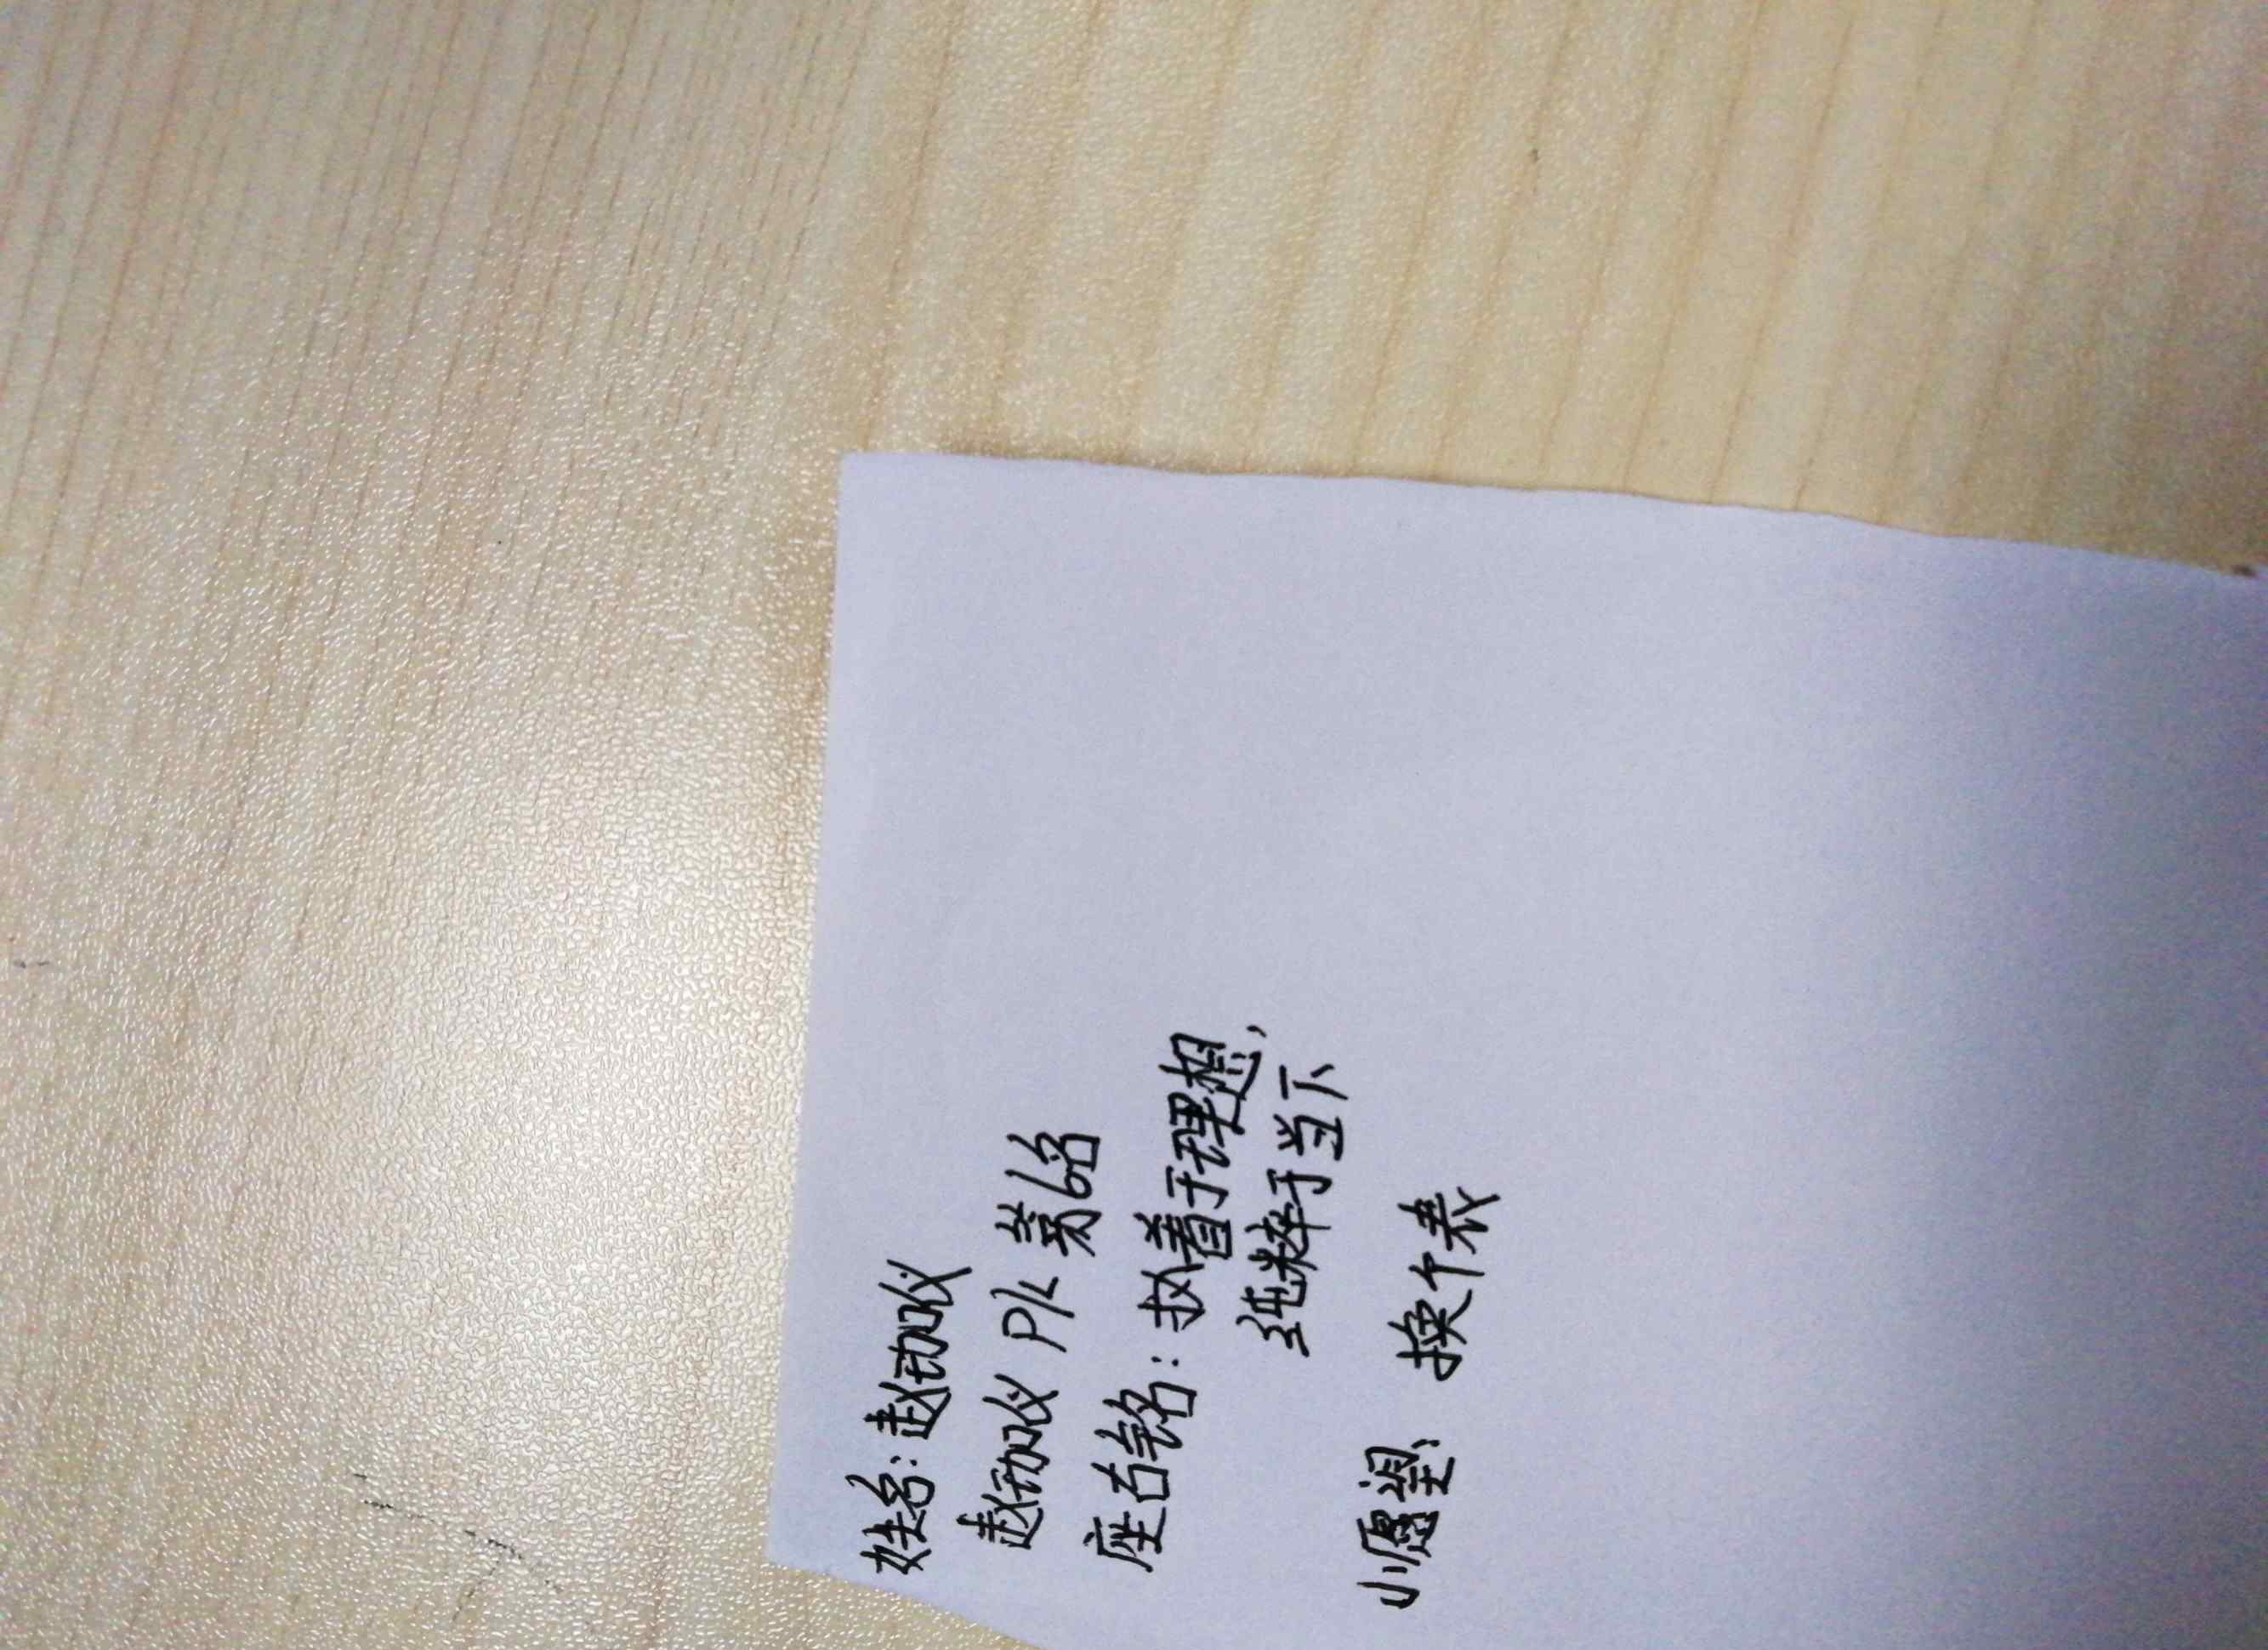 姓名：赵劲仪
赵劲仪 PK 第6名
座右铭：执着于理想，
纯粹于当下
小愿望： 换个表